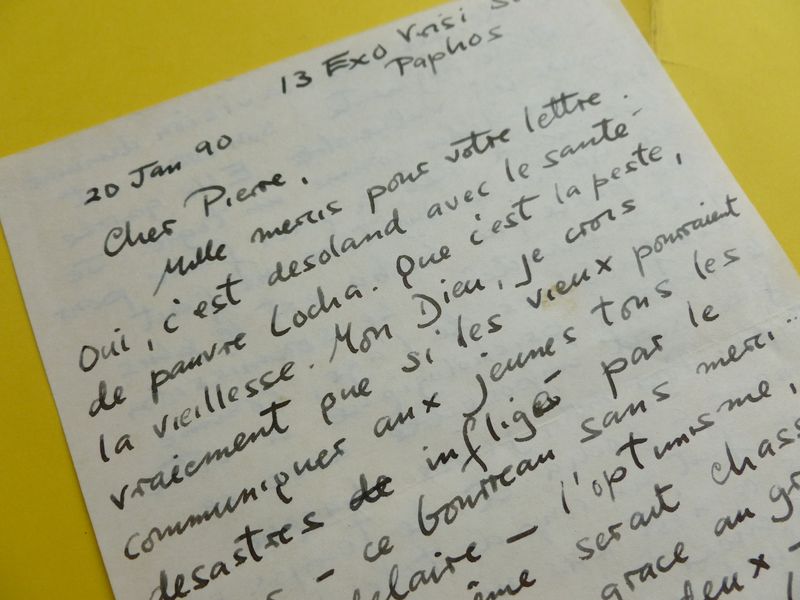 13 Exo Vrisi
Paphos
20 Jan 90
Cher Pierre,
Mille mercis pour votre lettre.
Oui, c'est desoland avec le santé
de pauvre Locha. Que c'est la peste,
la vieillesse. Mon Dieu, je crois
vraiement que si les vieux pourraient
communiquer aux jeunes tous les
desastres infligé par le
- ce bourreau sans merci...
- l'optimisme,
serait chass
grace au gr